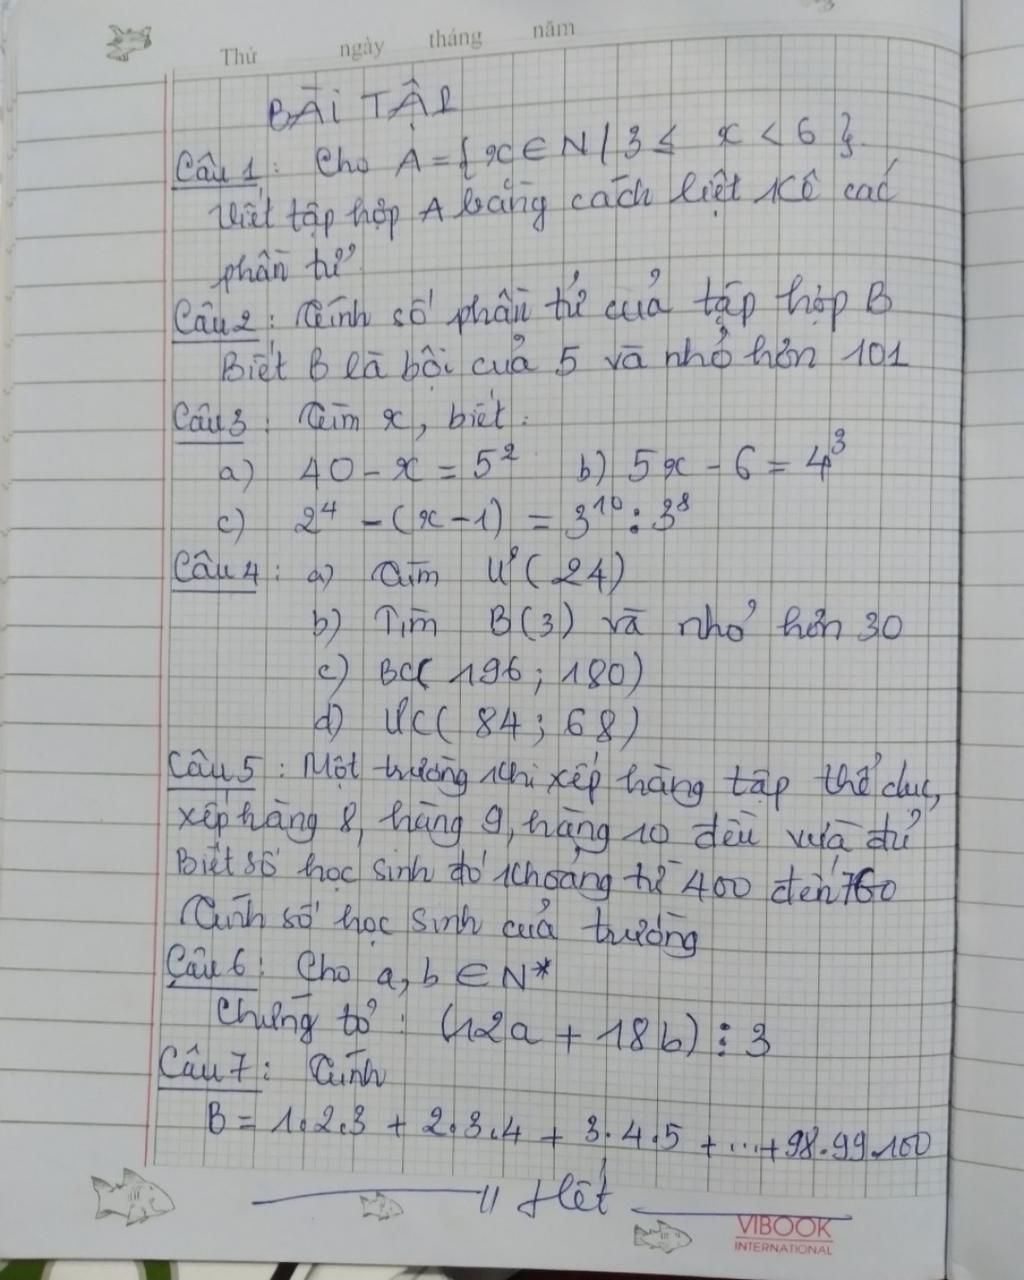 Thứ ngày tháng năm
BÀI TẬP
Câu 1: Cho A = { x ∈ N / 3 ≤ x < 6 }.
Viết tập hợp A bằng cách liệt kê các
phần tử
Câu 2: Tính số phần tử của tập hợp B
Biết B là bội của 5 và nhỏ hơn 101
Câu 3: Tìm x, biết:
a) 40 - x = 5² b) 5x - 6 = 4³
c) 2⁴ - (x - 1) = 3¹⁰ : 3⁸
Câu 4: a) Tìm Ư(24)
b) Tìm B(3) và nhỏ hơn 30
c) BC( 196 ; 180)
d) ƯC( 84 ; 68)
Câu 5: Một trường khi xếp hàng tập thể dục,
xếp hàng 8, hàng 9, hàng 10 đều vừa đủ
Biết số học sinh đó khoảng từ 400 đến 760
Tính số học sinh của trường
Câu 6: Cho a, b ∈ N*
Chứng tỏ: (12a + 18b) ⋮ 3
Câu 7: Tính
B = 1.2.3 + 2.3.4 + 3.4.5 + ... + 98.99.100
Hết
VIBOOK
INTERNATIONAL